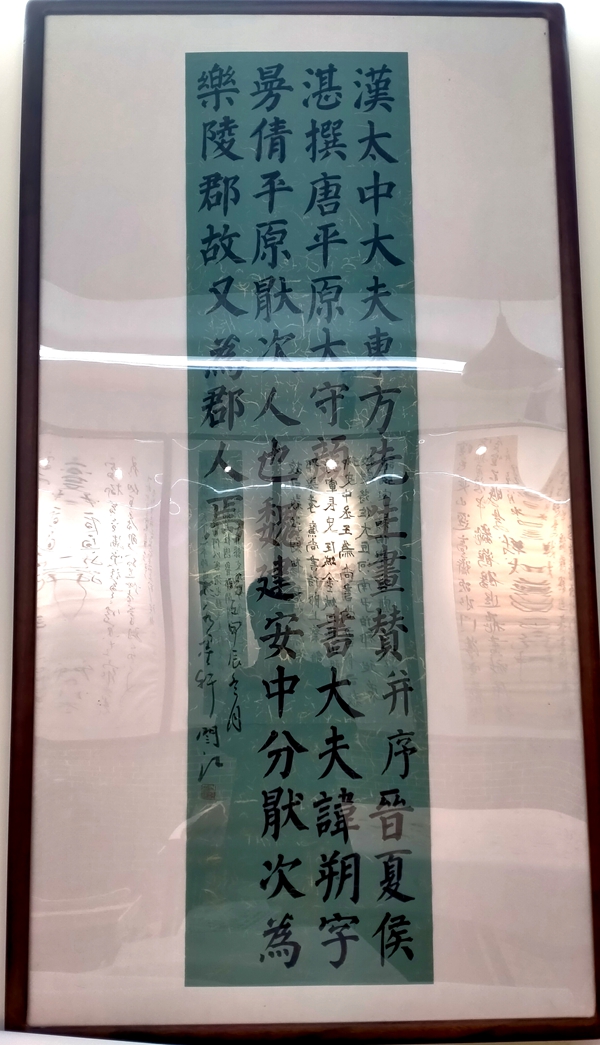 漢太中大夫東方先生畫贊并序晉夏侯
湛撰唐平原太守顏書大夫諱朔字
曼倩平原猒次人也魏建安中分猒次為
樂陵郡故又為郡人焉
甲辰冬月
軒閆江